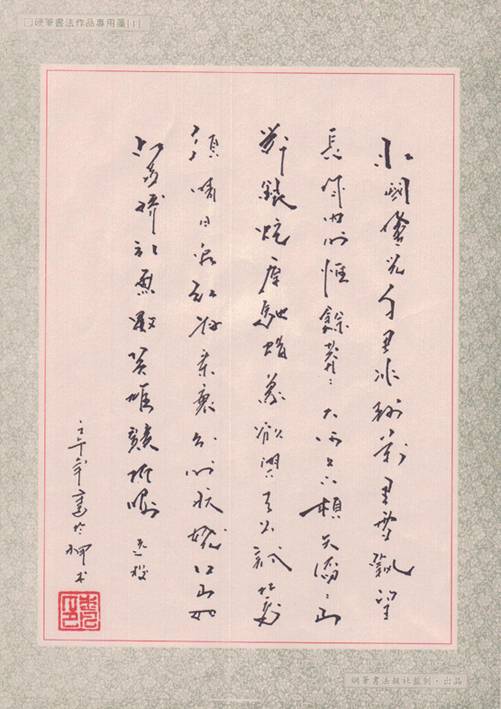 硬筆書法作品專用箋[1]
北國風光千里冰封萬里雪飄望
長城內外惟餘莽〻大河上下頓失滔〻山
舞銀蛇原馳蠟象欲與天公試比高
須晴日看紅妝素裹分外妖嬈江山如
此多嬌引無數英雄競折腰
壬午年書於
鋼筆書法報社監制·出品